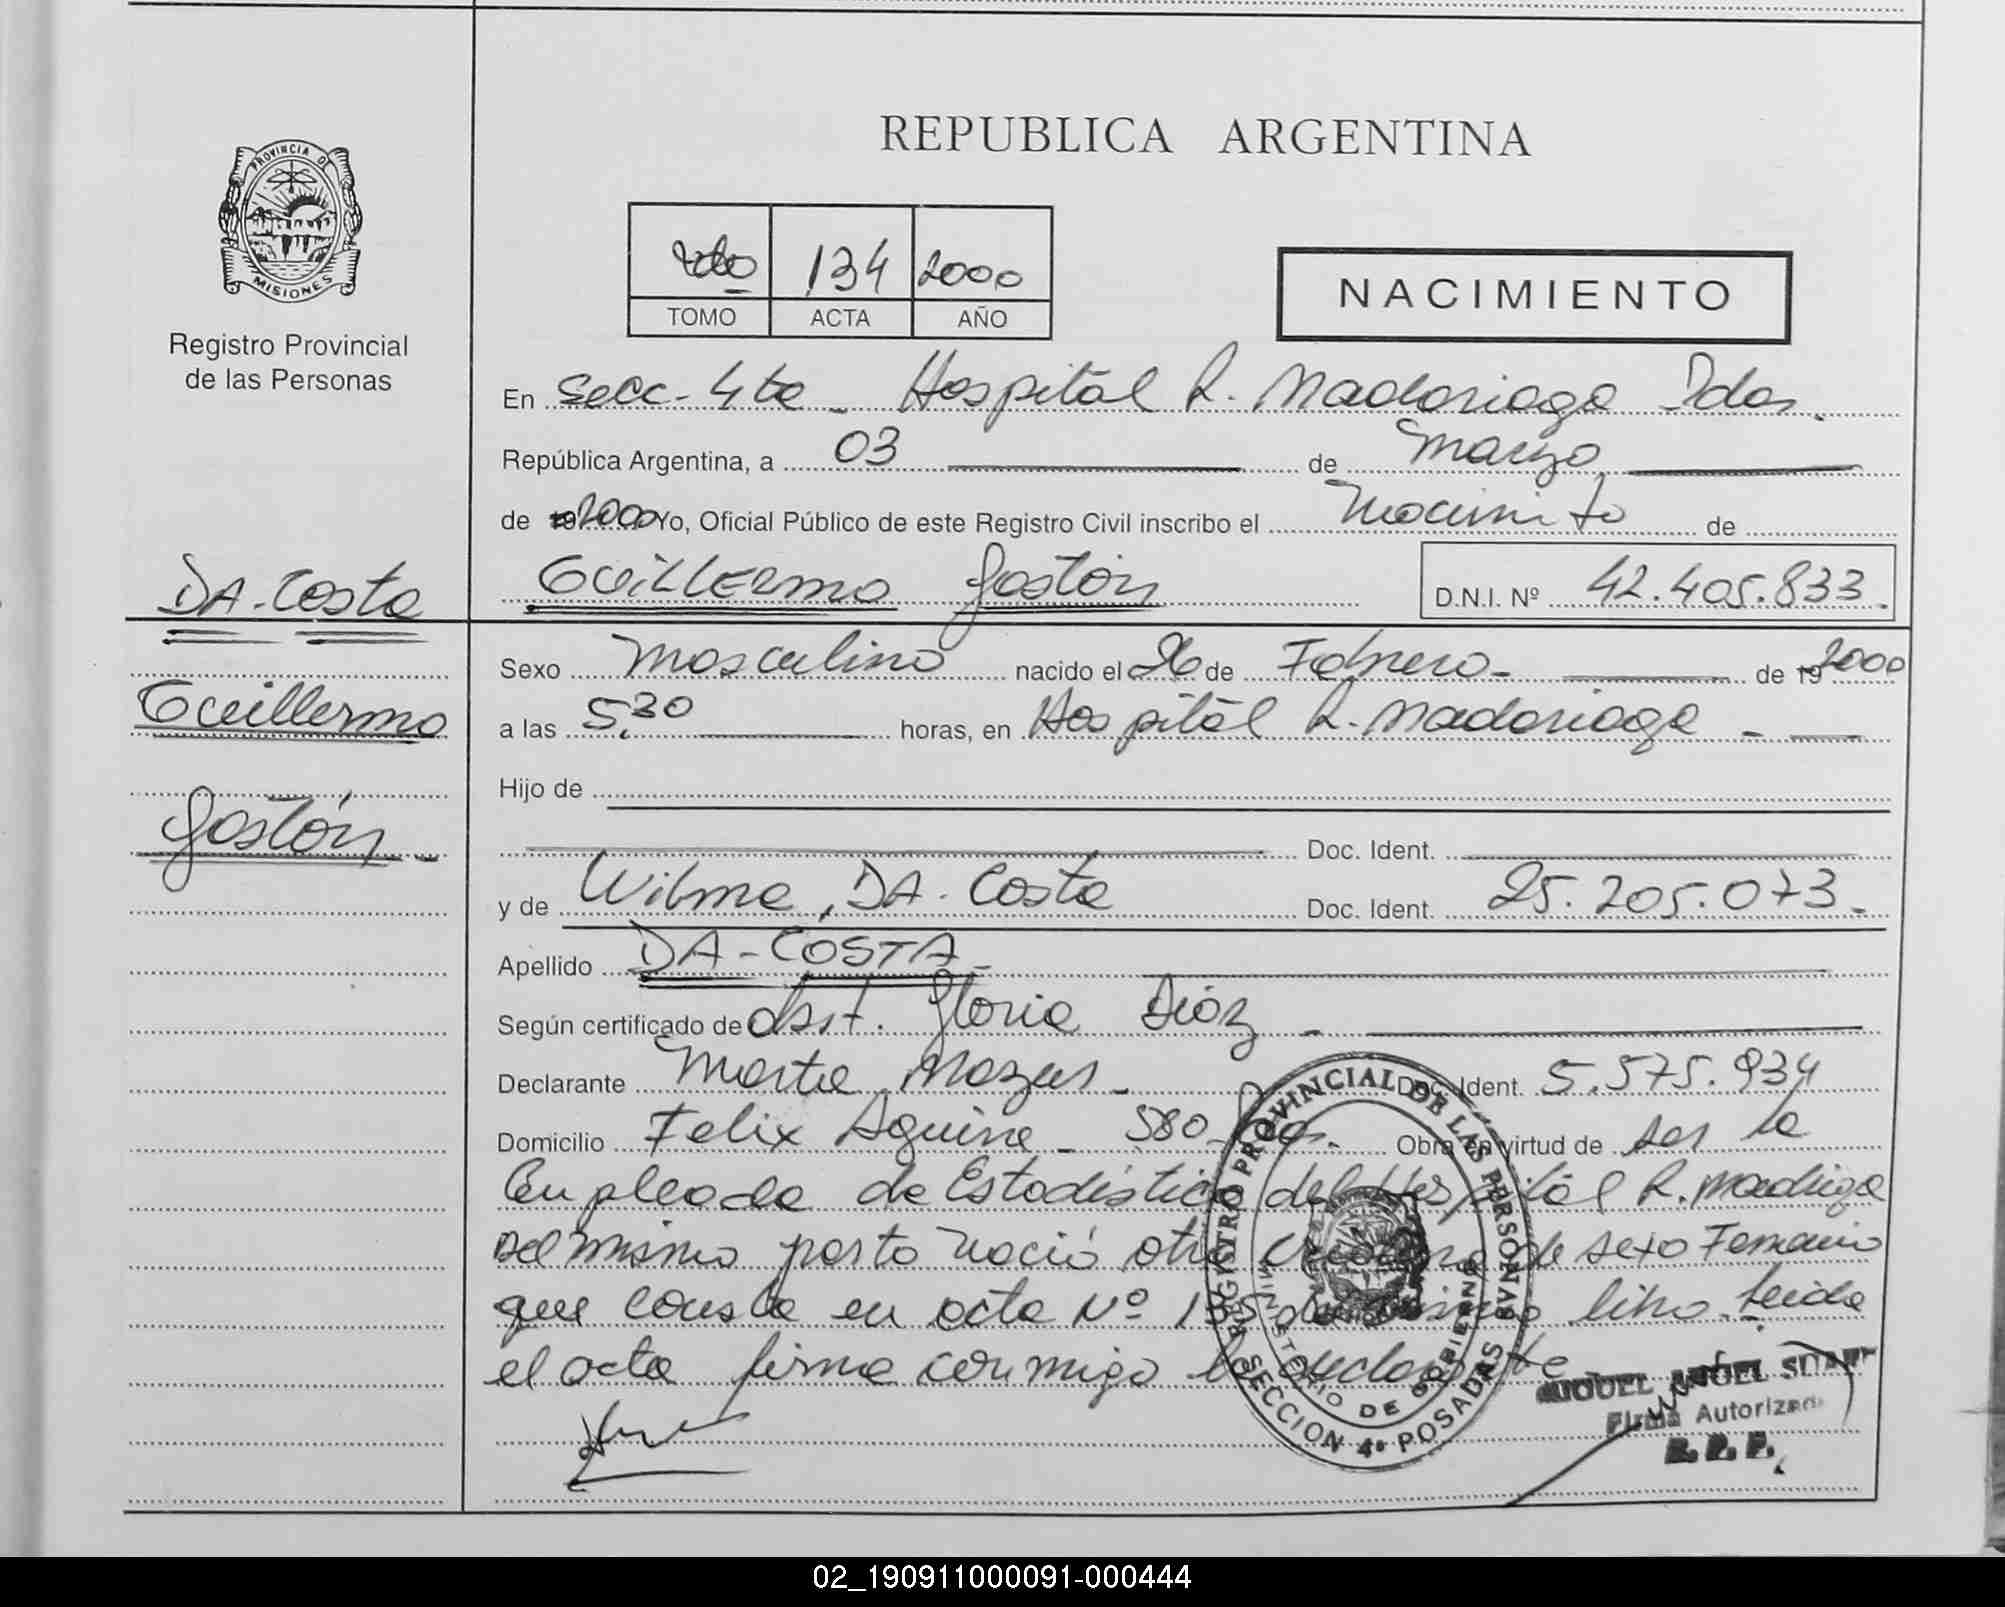 REPUBLICA ARGENTINA
PROVINCIA DE
MISIONES
Registro Provincial
de las Personas
2do 134 2000
TOMO ACTA AÑO
NACIMIENTO
En Secc- 4ta - Hospital R. Madariaga Pdas.
República Argentina, a 03 de Marzo
de 2000 Yo, Oficial Público de este Registro Civil inscribo el Nacimito de
DA-Costa
Guillermo Gastón D.N.I. Nº 42.405.833.
Sexo Masculino nacido el 26 de Febrero- de 19 2000
Guillermo
a las 5,30 horas, en Hospital R. Madariaga -
Hijo de
Gastón -
Doc. Ident.
y de Wilma, DA-Costa Doc. Ident. 25.205.073-
Apellido DA-COSTA-
Según certificado de Obst. Gloria Dióz -
Declarante Marta Doc. Ident. 5.575.934
Domicilio Felix Aguirre - 580- Obra en virtud de ser la
Empleada de Estadística del Hospital R. Madriga
Del mismo parto Nació otra de sexo Femenino
que consta en acta Nº 135 del mismo libro. Leida
el acta firma conmigo la declarante
REGISTRO PROVINCIAL DE LAS PERSONAS
MINISTERIO DE GOBIERNO
SECCION 4ª POSADAS
MIGUEL ANGEL
Firma Autorizada
R. P. P.
02_190911000091-000444